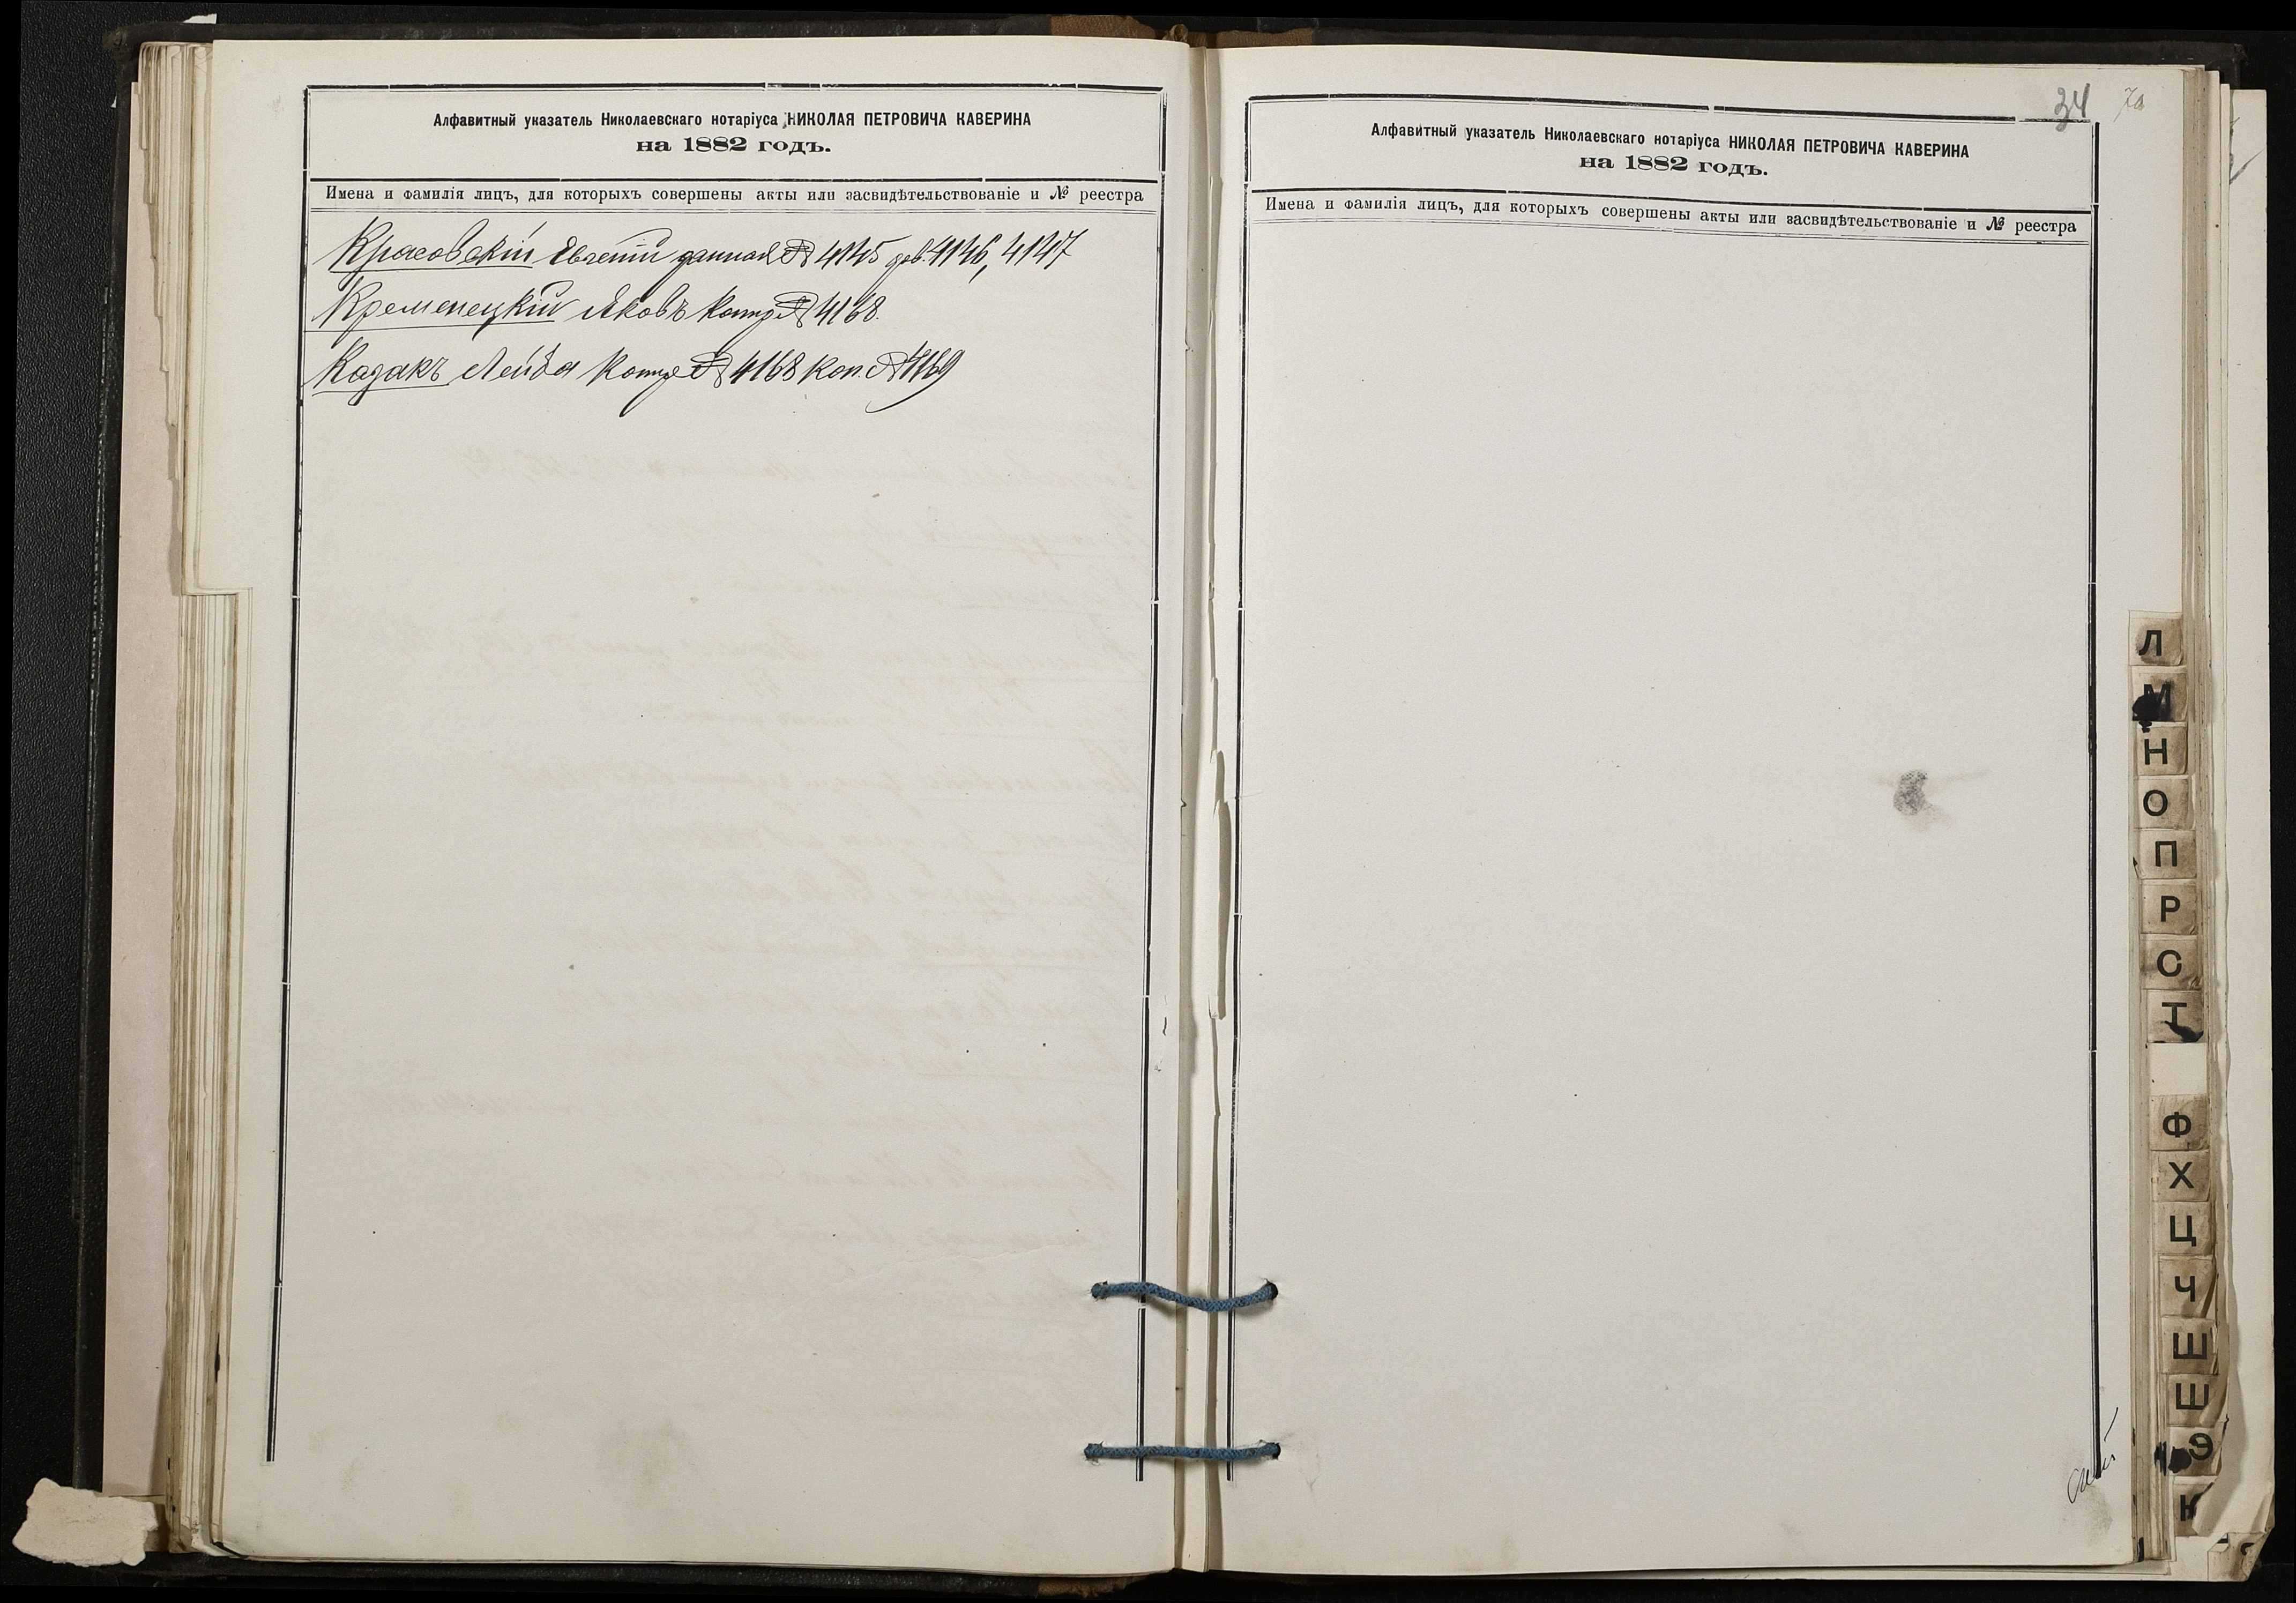 Алфавитный указатель Николаевскаго нотаріуса НИКОЛАЯ ПЕТРОВИЧА КАВЕРИНА
на 1882 годъ.
Имена и фамилія лицъ, для которыхъ совершены акты или засвидѣтельствованіе и № реестра
Красовскій Евгеній данная № 4145 дов. 4146, 4147
Кременецкій Яковъ контр № 4168
Казакъ Лейба контр № 4168 коп. № 4169
34
Алфавитный указатель Николаевскаго нотаріуса НИКОЛАЯ ПЕТРОВИЧА КАВЕРИНА
на 1882 годъ.
Имена и фамилія лицъ, для которыхъ совершены акты или засвидѣтельствованіе и № реестра
Л
М
Н
О
П
Р
С
Т
Ф
Х
Ц
Ч
Ш
Ш
Э